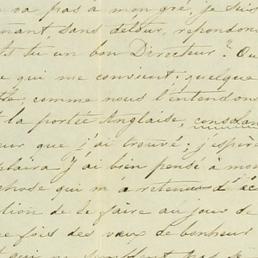 va pas à mon gré, je suis
nant, sans détour, répondon
ts tu un bon Directeur? Ou
e qui me convient; quelque
comme nous l'entendons
la portée Anglaise, constan
uer que j'ai trouvé; j'espère
plaira J'ai bien pensé à mon
chose qui m'a retenue d'éc
tion de le faire au jour de
re fois des vœux de bonheur
qui ne semblent pas